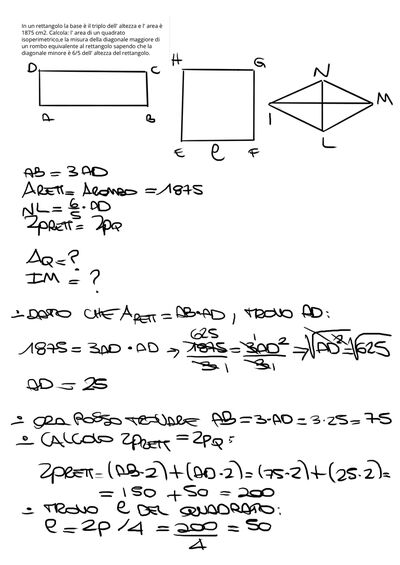 In un rettangolo la base è il triplo dell' altezza e l' area è
1875 cm2. Calcola: l' area di un quadrato
isoperimetrico,e la misura della diagonale maggiore di
un rombo equivalente al rettangolo sapendo che la
diagonale minore è 6/5 dell' altezza del rettangolo.
D C H G N
I M
A B E e F L
AB = 3AD
ARETT = AROMBO = 1875
NL = 6/5 · AD
2pRETT = 2pQ
AQ = ?
IM = ?
÷ DATO CHE ARETT = AB·AD, TROVO AD:
1875 = 3AD · AD → 625 1875/3·1 = 1 3AD²/3·1 = √AD² = √625
AD = 25
÷ ORA POSSO TROVARE AB = 3·AD = 3·25 = 75
÷ CALCOLO 2pRETT = 2pQ:
2pRETT = (AB·2) + (AD·2) = (75·2) + (25·2) =
= 150 + 50 = 200
÷ TROVO e DEL QUADRATO:
e = 2p/4 = 200/4 = 50